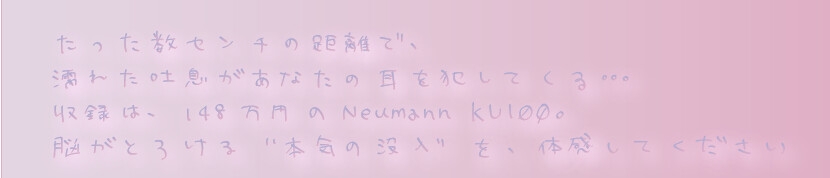 たった数センチの距離で、
濡れた吐息があなたの耳を犯してくる…
収録は、148万円のNeumann KU100。
脳がとろける"本気の没入"を、体感してください